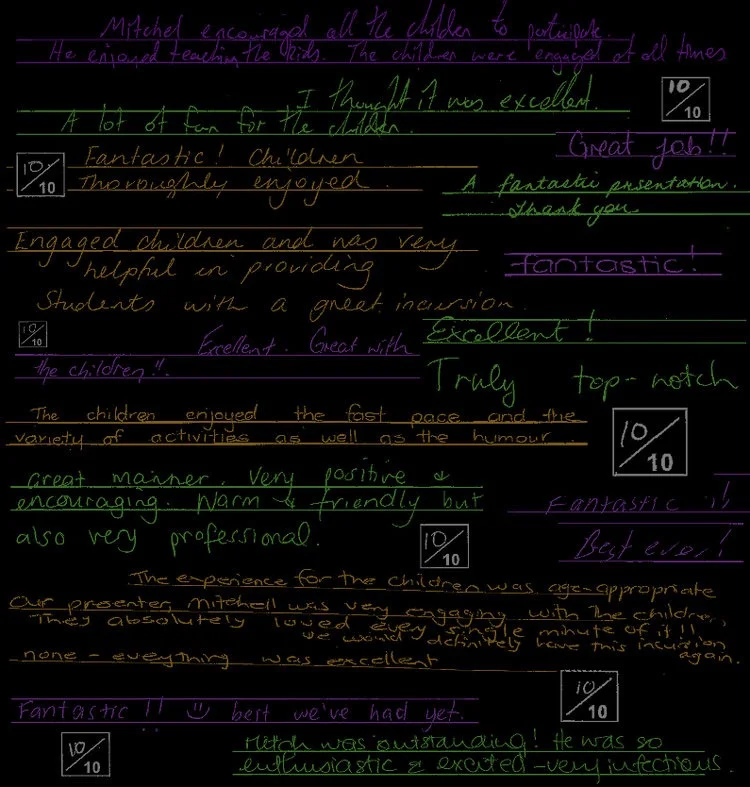 Mitchel encouraged all the children to participate.
He enjoyed teaching the kids. The children were engaged at all times
I thought it was excellent.
A lot of fun for the children.
10/10
Great job!!
10/10
Fantastic! Children
thoroughly enjoyed.
A fantastic presentation.
Thank you
Engaged children and was very
helpful in providing
students with a great incursion.
fantastic!
10/10
Excellent. Great with
the children!!
Excellent!
Truly top-notch
The children enjoyed the fast pace and the
variety of activities as well as the humour.
10/10
Great manner. Very positive &
encouraging. Warm & friendly but
also very professional.
10/10
Fantastic!!
Best ever!
The experience for the children was age-appropriate
Our presenter, Mitchell was very engaging with the children,
They absolutely loved every single minute of it!!
We would definitely have this incursion
again.
none - eveything was excellent
10/10
Fantastic!! best we've had yet.
10/10
Mitch was outstanding! He was so
enthusiastic & excited - very infectious.